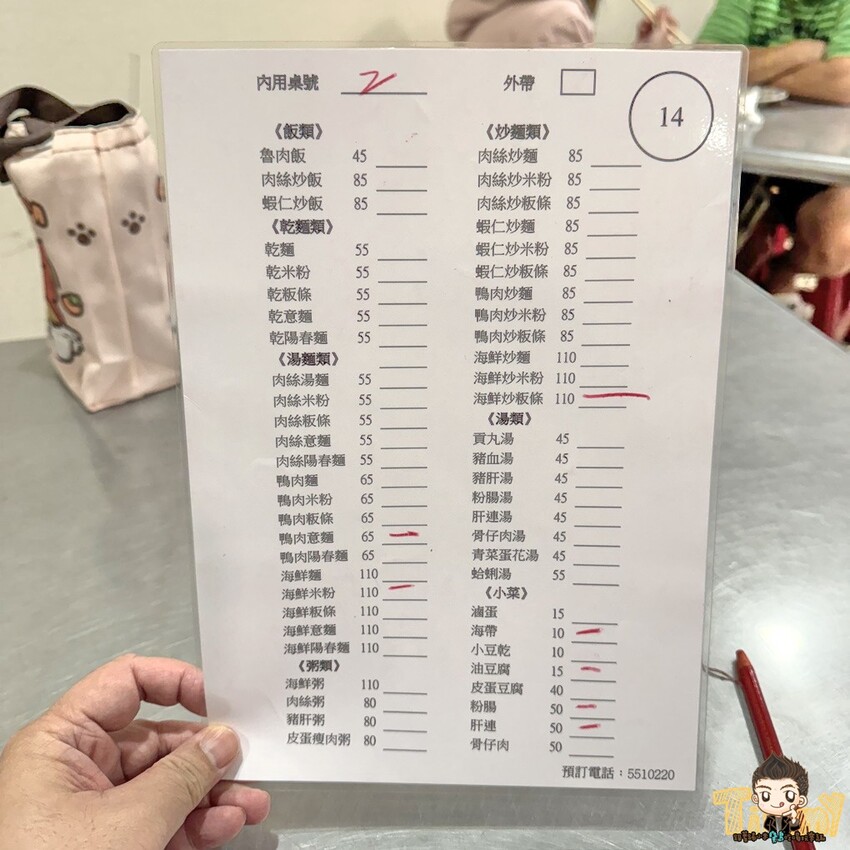 內用桌號 2
外帶
14
《飯類》
魯肉飯 45
肉絲炒飯 85
蝦仁炒飯 85
《乾麵類》
乾麵 55
乾米粉 55
乾粄條 55
乾意麵 55
乾陽春麵 55
《湯麵類》
肉絲湯麵 55
肉絲米粉 55
肉絲粄條 55
肉絲意麵 55
肉絲陽春麵 55
鴨肉麵 65
鴨肉米粉 65
鴨肉粄條 65
鴨肉意麵 65
鴨肉陽春麵 65
海鮮麵 110
海鮮米粉 110
海鮮粄條 110
海鮮意麵 110
海鮮陽春麵 110
《粥類》
海鮮粥 110
肉絲粥 80
豬肝粥 80
皮蛋瘦肉粥 80
《炒麵類》
肉絲炒麵 85
肉絲炒米粉 85
肉絲炒粄條 85
蝦仁炒麵 85
蝦仁炒米粉 85
蝦仁炒粄條 85
鴨肉炒麵 85
鴨肉炒米粉 85
鴨肉炒粄條 85
海鮮炒麵 110
海鮮炒米粉 110
海鮮炒粄條 110
《湯類》
貢丸湯 45
豬血湯 45
豬肝湯 45
粉腸湯 45
肝連湯 45
骨仔肉湯 45
青菜蛋花湯 45
蛤蜊湯 55
《小菜》
滷蛋 15
海帶 10
小豆乾 10
油豆腐 15
皮蛋豆腐 40
粉腸 50
肝連 50
骨仔肉 50
預訂電話：5510220